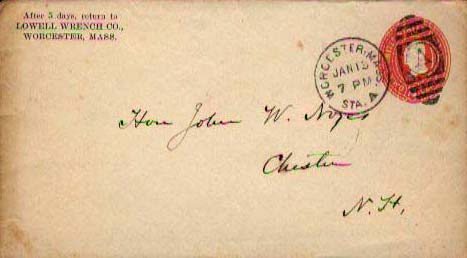 After 5 days, return to
LOWELL WRENCH CO.,
WORCESTER, MASS.
WORCESTER, MASS.
JAN 15
7 PM
STA. A
Hon John W. Noyes
Chester
N. H.